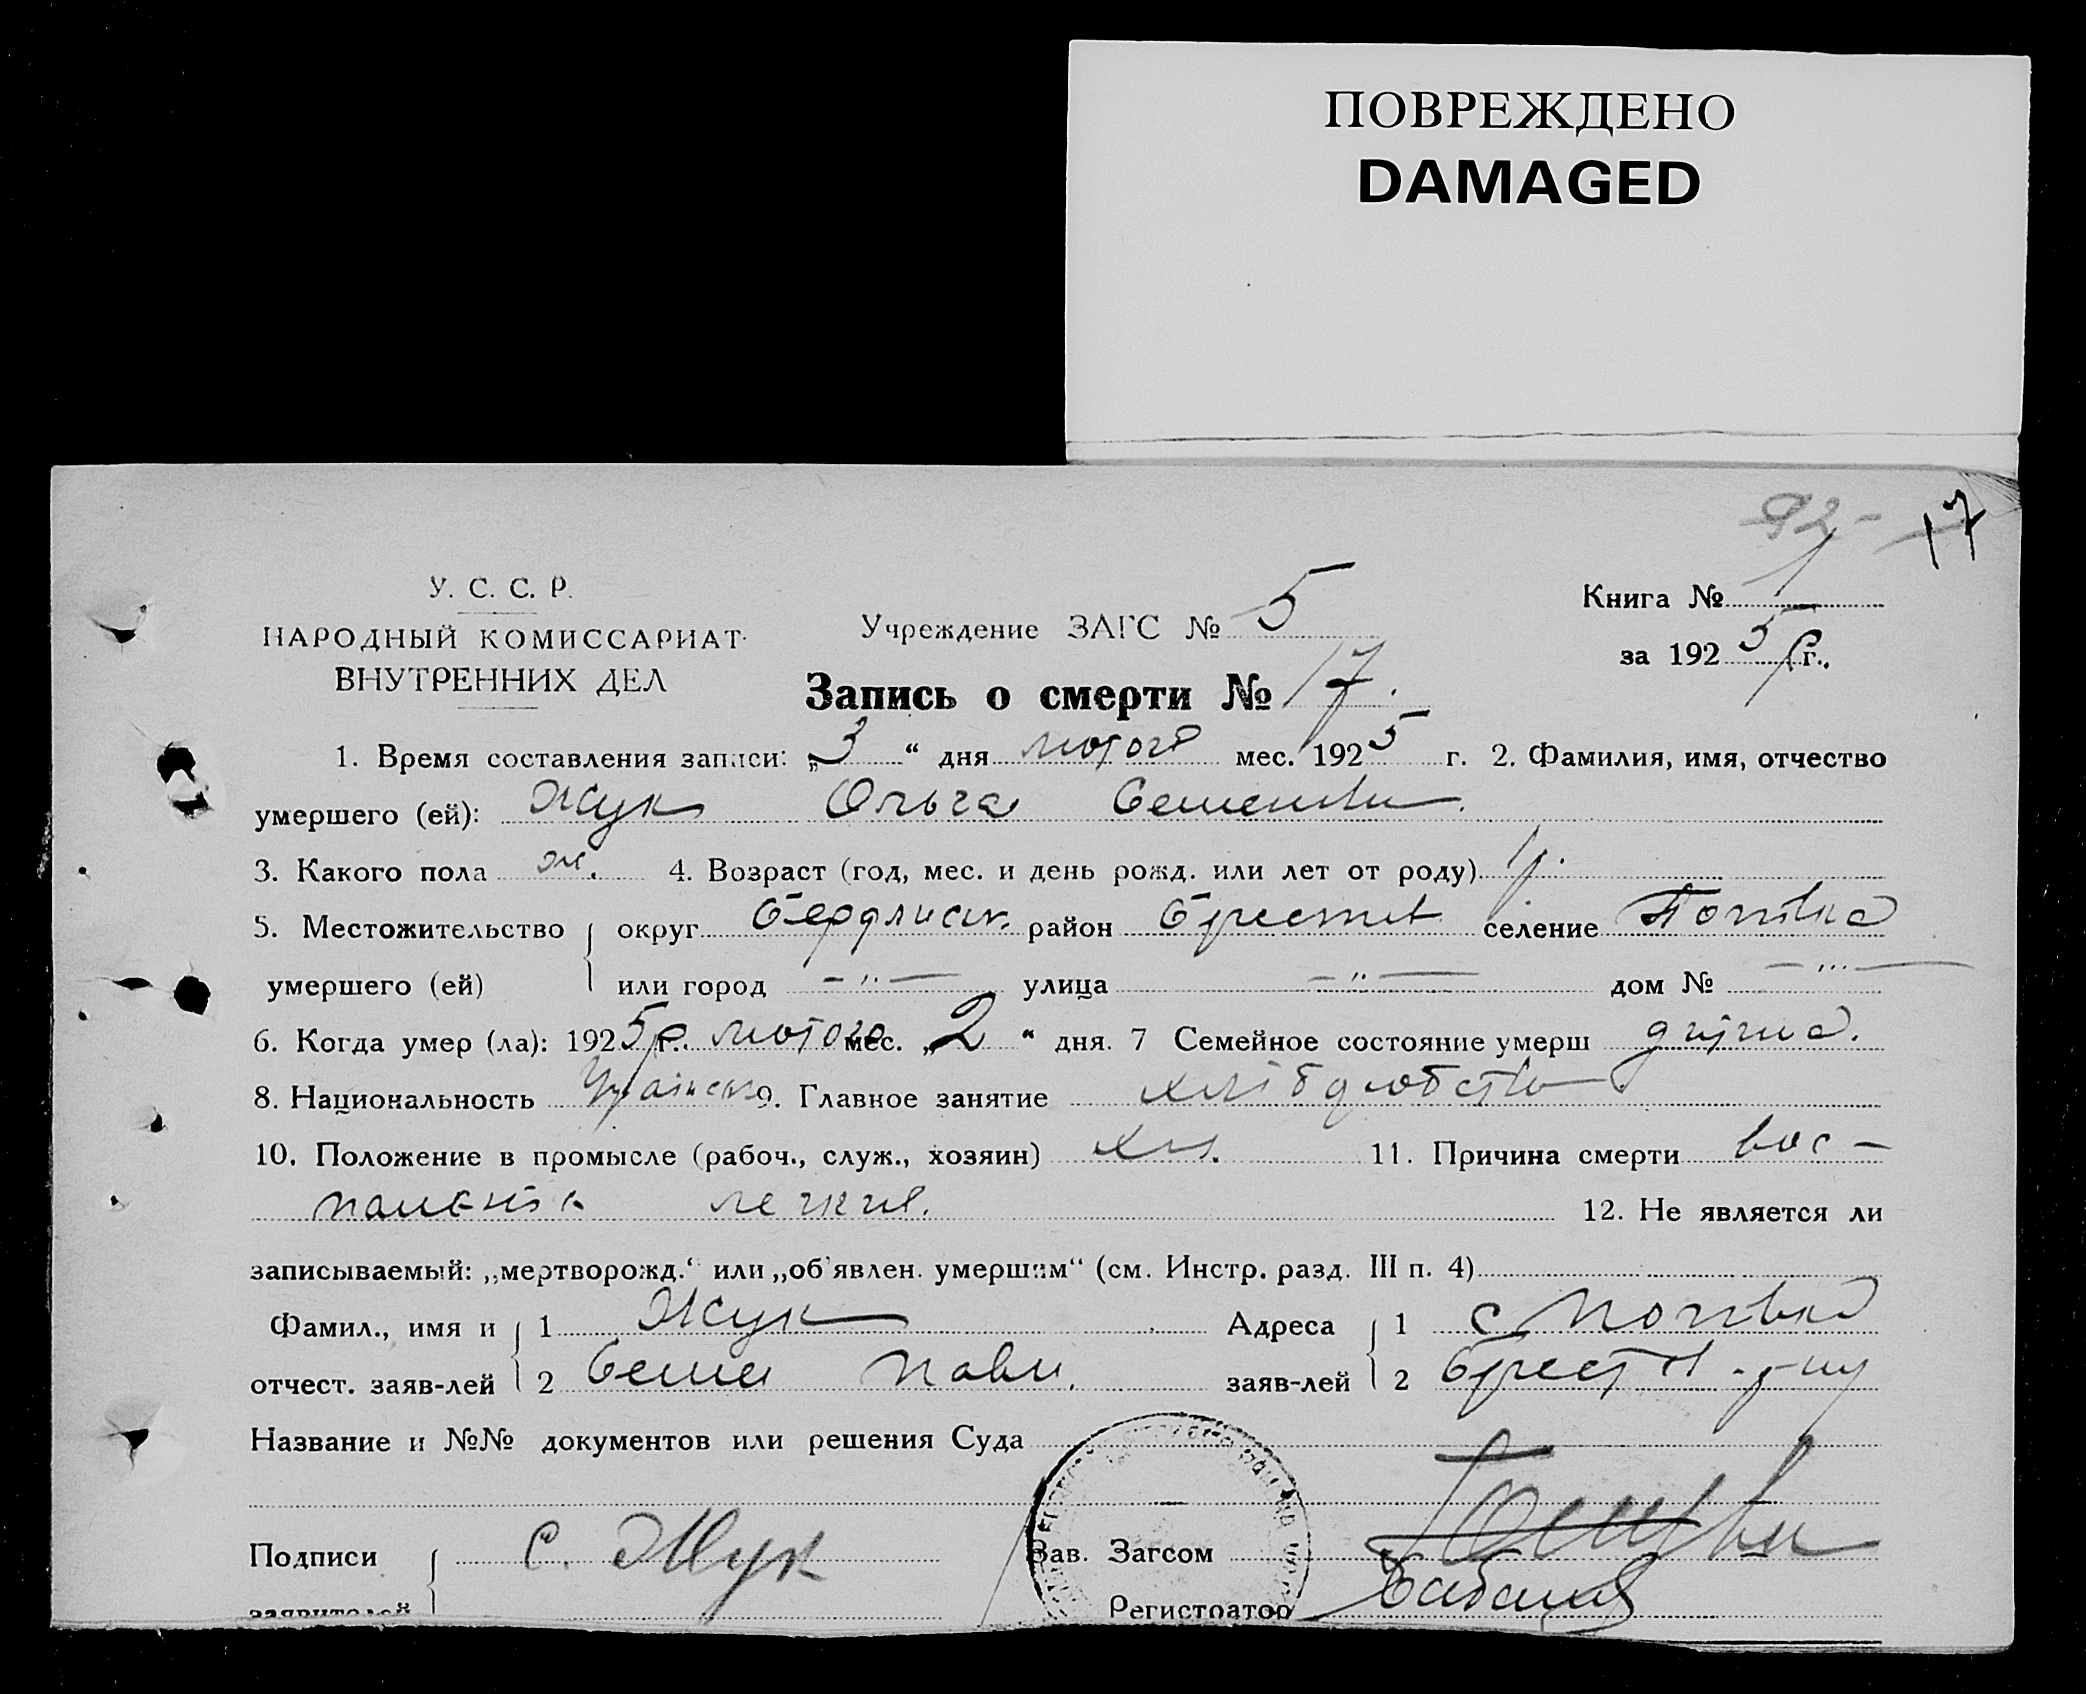 ПОВРЕЖДЕНО
DAMAGED
92 17
У. С. С. Р.
НАРОДНЫЙ КОМИССАРИАТ
ВНУТРЕННИХ ДЕЛ
Учреждение ЗАГС № 5
Книга № 1
за 1925 р г.,
Запись о смерти № 17.
1. Время составления записи: „3“ дня лютого мес. 1925 г. 2. Фамилия, имя, отчество
умершего (ей): Жук Ольга Семенівн.
3. Какого пола ж. 4. Возраст (год, мес. и день рожд. или лет от роду) 1 р.
5. Местожительство округ район селение
умершего (ей) или город -"- улица -"- дом № -"-
6. Когда умер (ла): 1925 р г. лютого мес. „2“ дня. 7 Семейное состояние умерш дитина.
8. Национальность Українск 9. Главное занятие хлібодробство
10. Положение в промысле (рабоч., служ., хозяин) хл. 11. Причина смерти вос-
паленія легких. 12. Не является ли
записываемый: „мертворожд.“ или „об'явлен. умершим“ (см. Инстр. разд. III п. 4)
Фамил., имя и 1 Жук Адреса 1 с
отчест. заяв-лей 2 Семен Павл. заяв-лей 2
Название и №№ документов или решения Суда
Подписи С. Жук Зав. Загсом
заявителей Регистратор